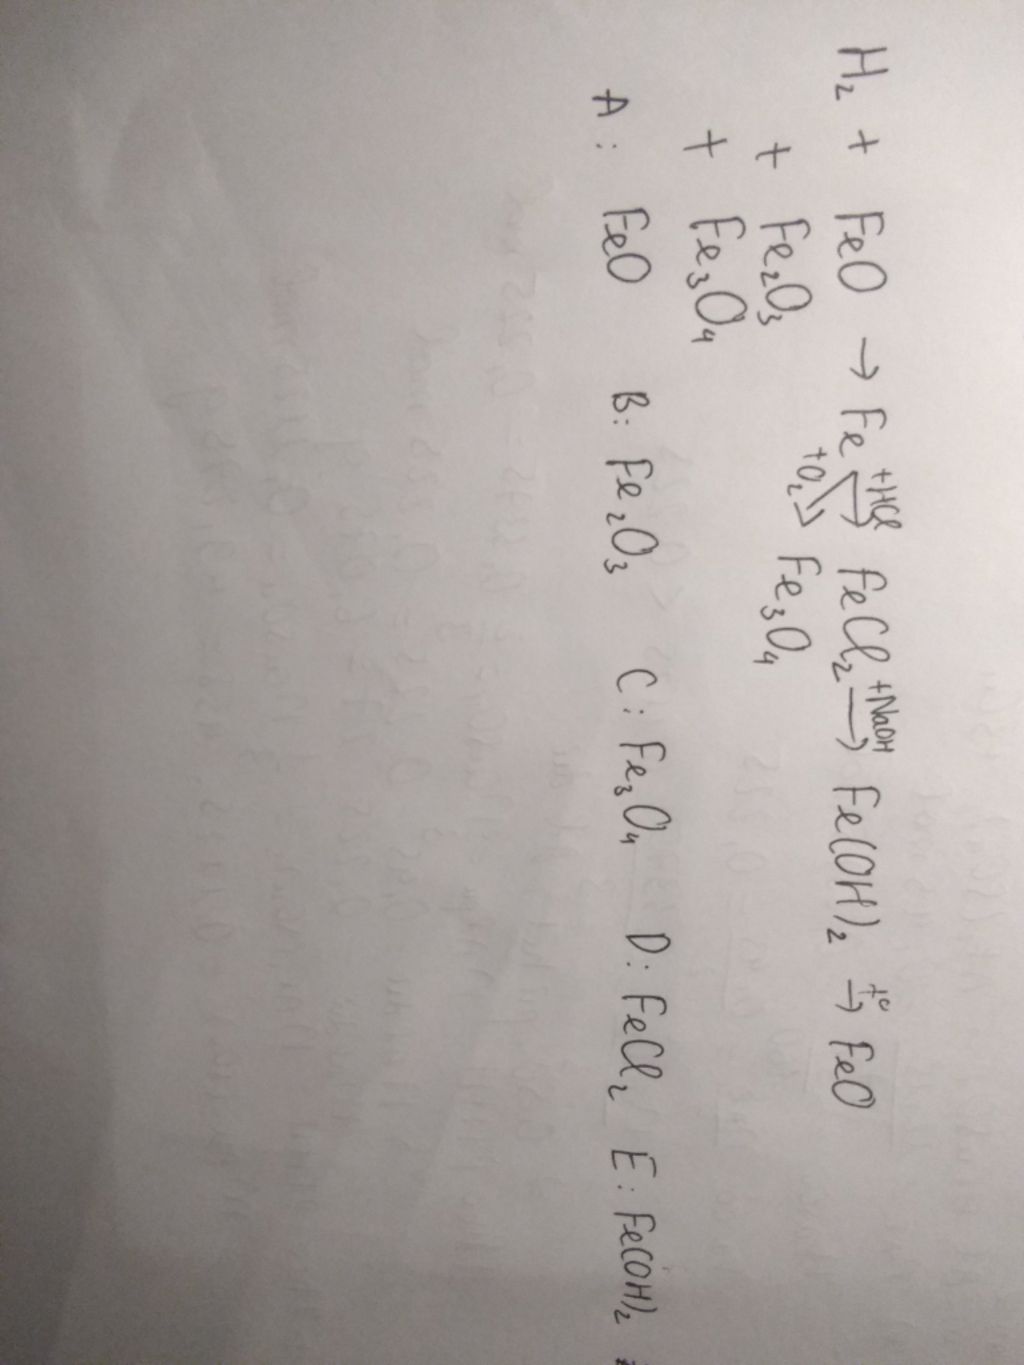 H₂ + FeO → Fe +HCl → FeCl₂ +NaOH → Fe(OH)₂ t° → FeO
+ Fe₂O₃ +O₂ → Fe₃O₄
+ Fe₃O₄
A: FeO B: Fe₂O₃ C: Fe₃O₄ D: FeCl₂ E: Fe(OH)₂